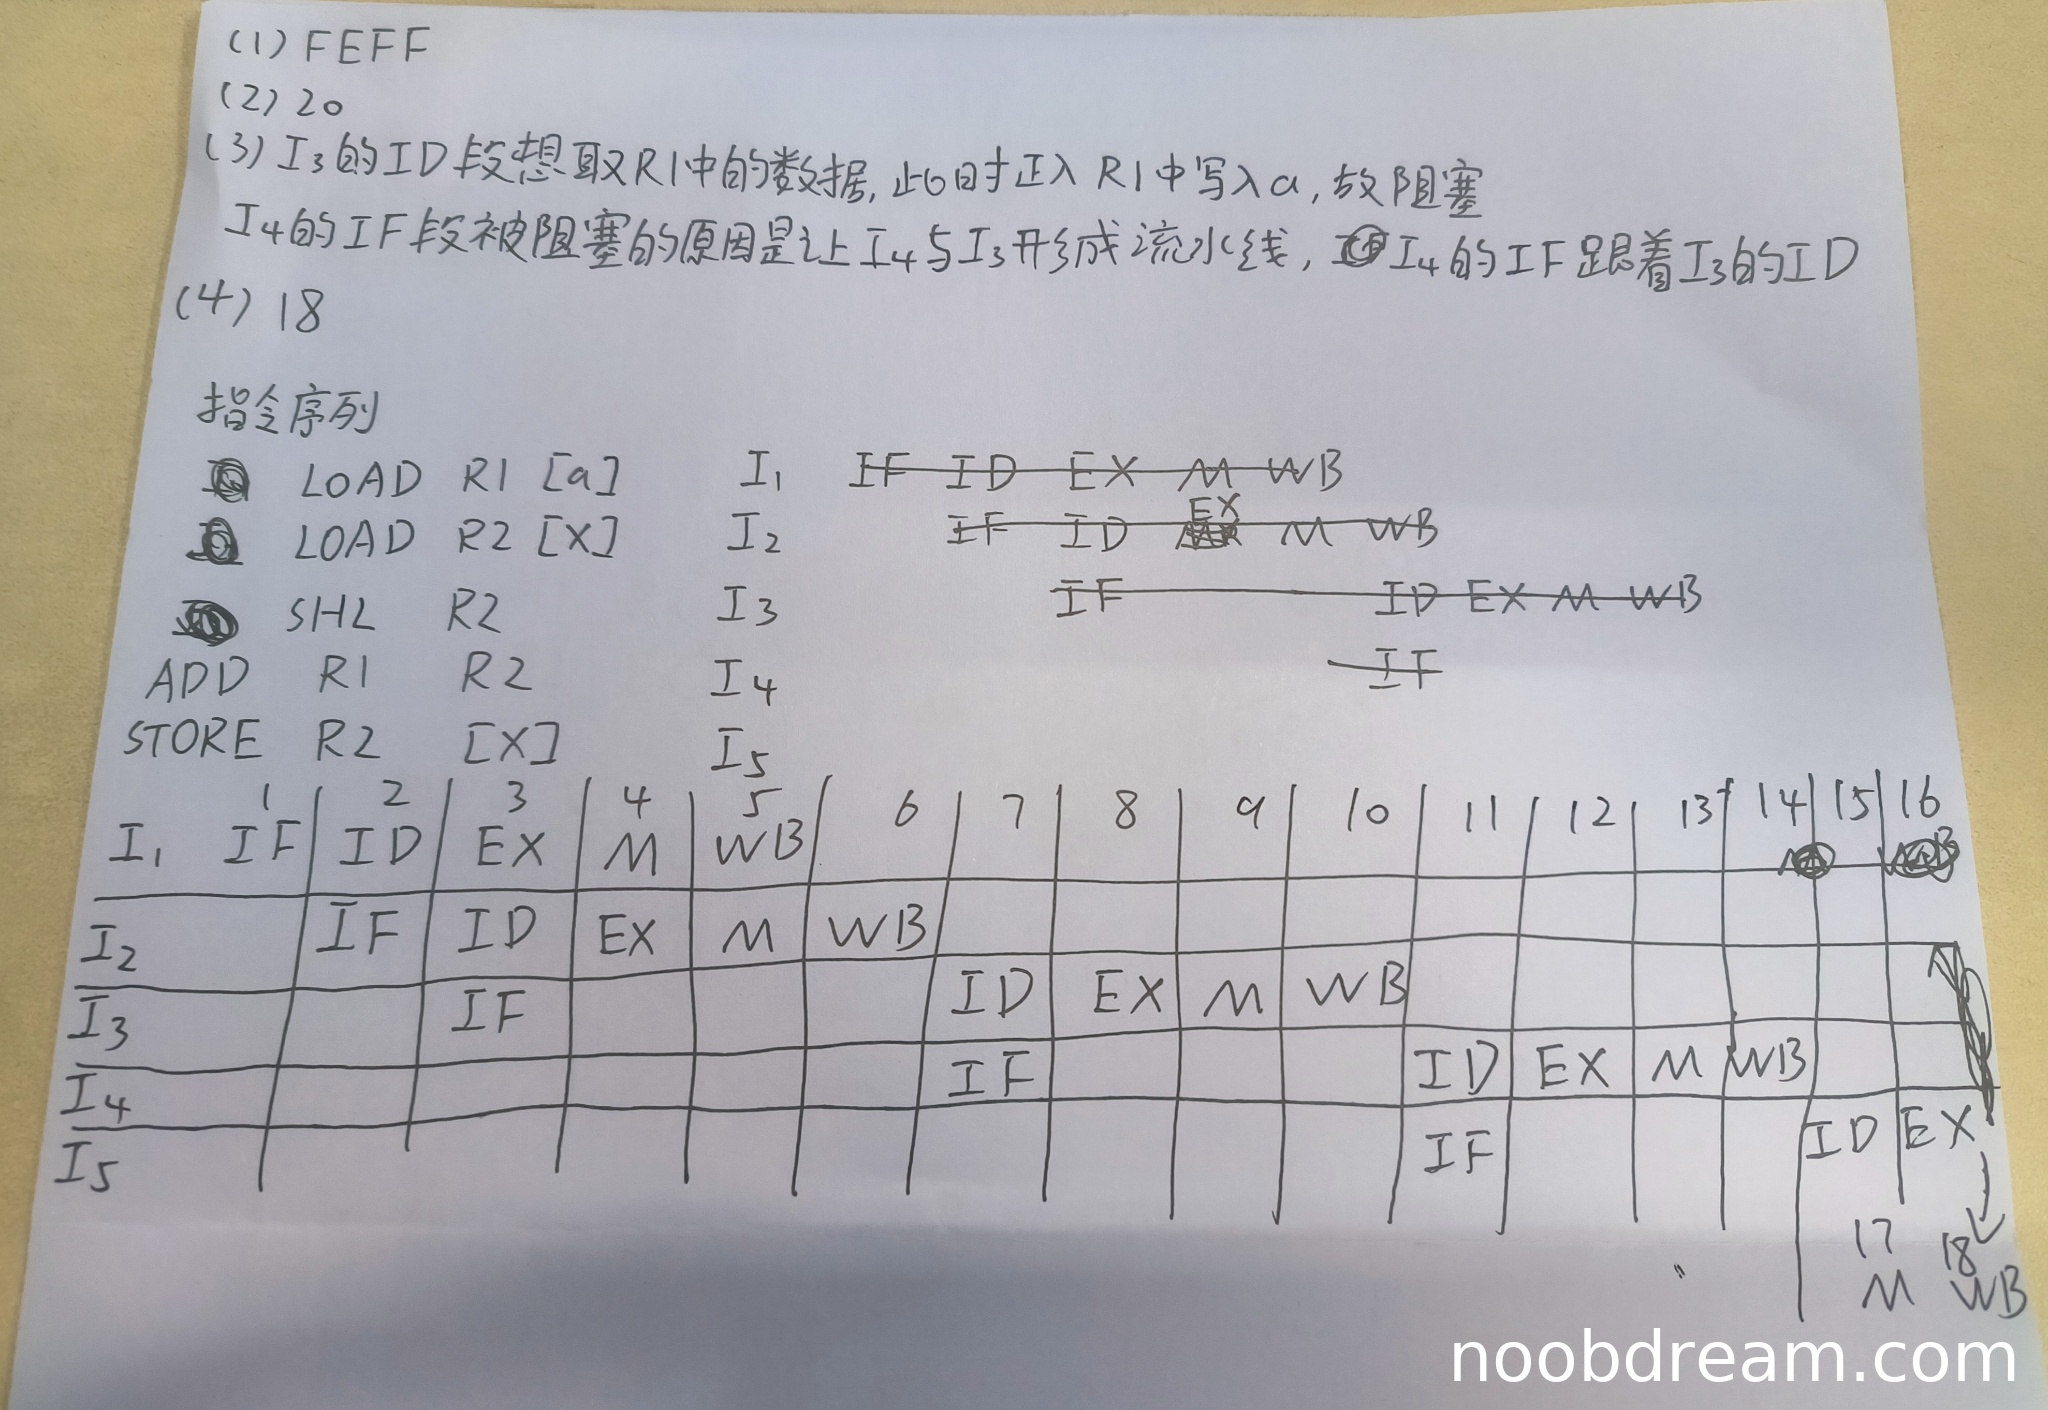 (1) FEFF
(2) 20
(3) I3的ID段想取R1中的数据,此时正入R1中写入a,故阻塞
I4的IF段被阻塞的原因是让I4与I3形成流水线, I4的IF跟着I3的ID
(4) 18
指令序列
LOAD R1 [a] I1 IF ID EX M WB
LOAD R2 [X] I2 IF ID EX M WB
SHL R2 I3 IF ID EX M WB
ADD R1 R2 I4 IF
STORE R2 [X] I5
1 2 3 4 5 6 7 8 9 10 11 12 13 14 15 16
I1 IF ID EX M WB
I2 IF ID EX M WB
I3 IF ID EX M WB
I4 IF ID EX M WB
I5 IF ID EX
17 18
M WB
noobdream.com